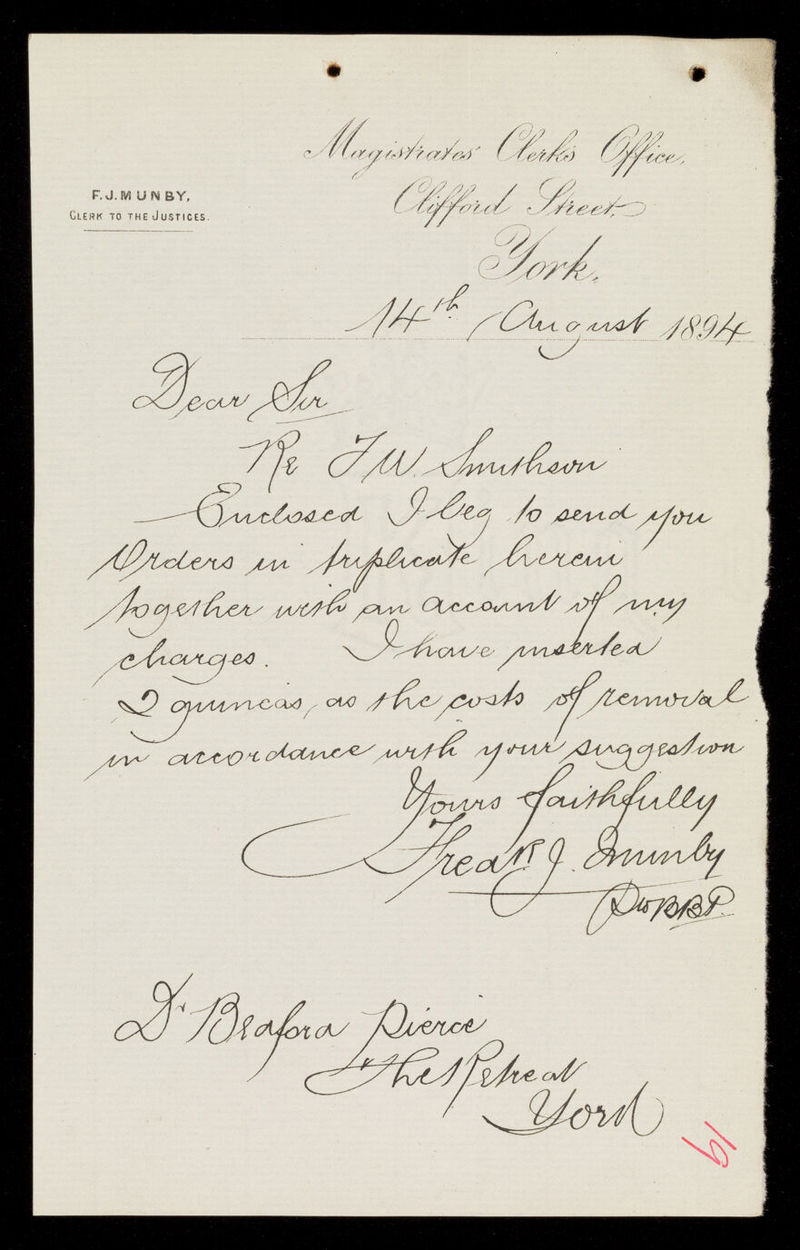 Magistrates' Clerk's Office,
F. J. MUNBY,
CLERK TO THE JUSTICES.
Clifford Street,
York,
14th August 1894
Dear Sir
Re F W. Smithson
Enclosed I beg to send you
Orders in triplicate herein
together with an account of my
charges. I have inserted
2 guineas, as the costs of removal
in accordance with your suggestion
Yours faithfully
Fredk J. Munby
Dr Bedford Pierce
The Retreat
York
19